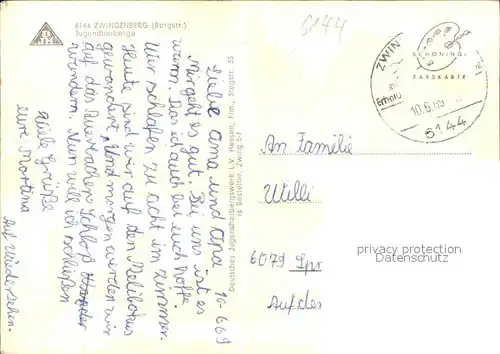 6144 ZWINGENBERG (Bergstr.)
Jugendherberge
6144
Liebe Oma und Opa 10.6.69
Mir geht es gut. Bei uns ist es
warm. Das ich auch bei euch hoffe.
Wir schlafen zu acht im zimmer.
Heute sind wir auf den Melibokus
gewandert. Und morgen werden wir
auf das Auerbacher Schloß
wandern. Nun will ich schließen
Viele Grüße
eure Martina
Auf Wiedersehen.
Deutsches Jugendherbergswerk LV Hessen, Ffm., Stegstr. 33
is Bestellnr. Zwing
SCHÖNING
FARBKARTE
ZWIN
10.6.69
6144
An Familie
Willi
6079
Auf des
privacy protection
Datenschutz